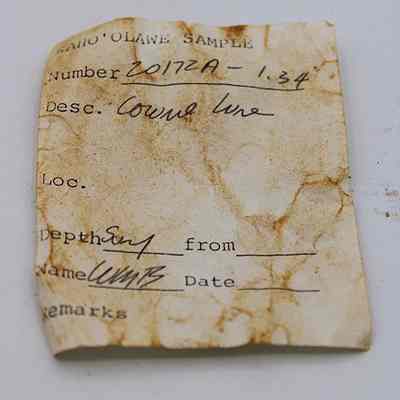 KAHO'OLAWE SAMPLE
Number 20172A - 1.34
Desc. Cowrie lure
Loc.
Depth Surf from
Name Date
Remarks